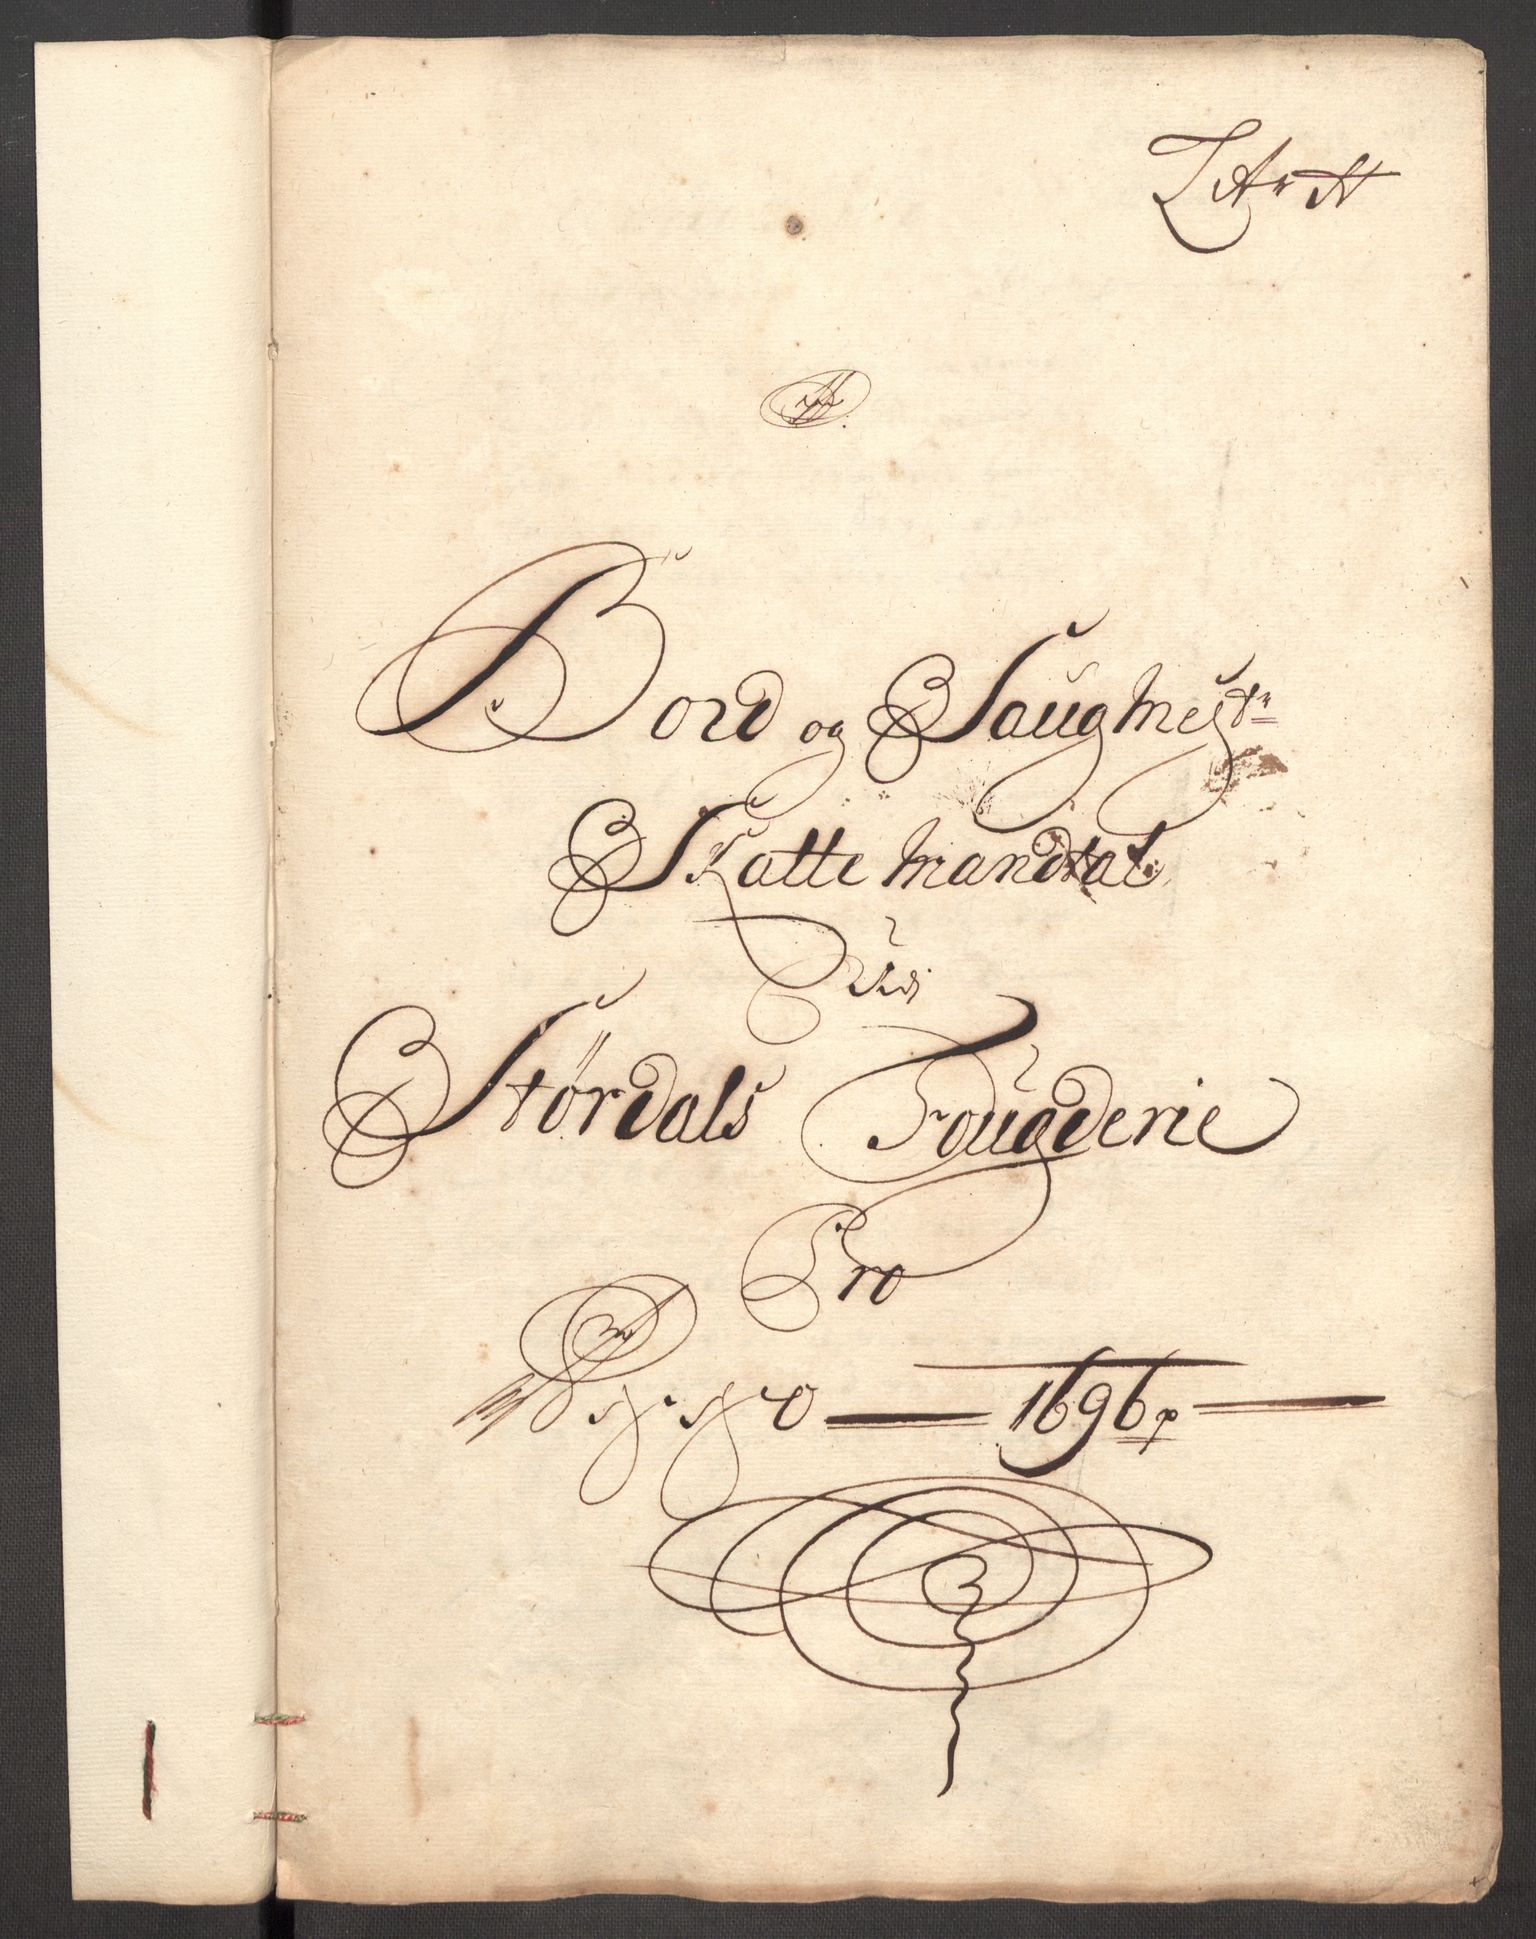 Litr A
Bord og Saugmestr
Skatte Mandtal
Udj
Størdals Fougderie
Pro
Anno 1696